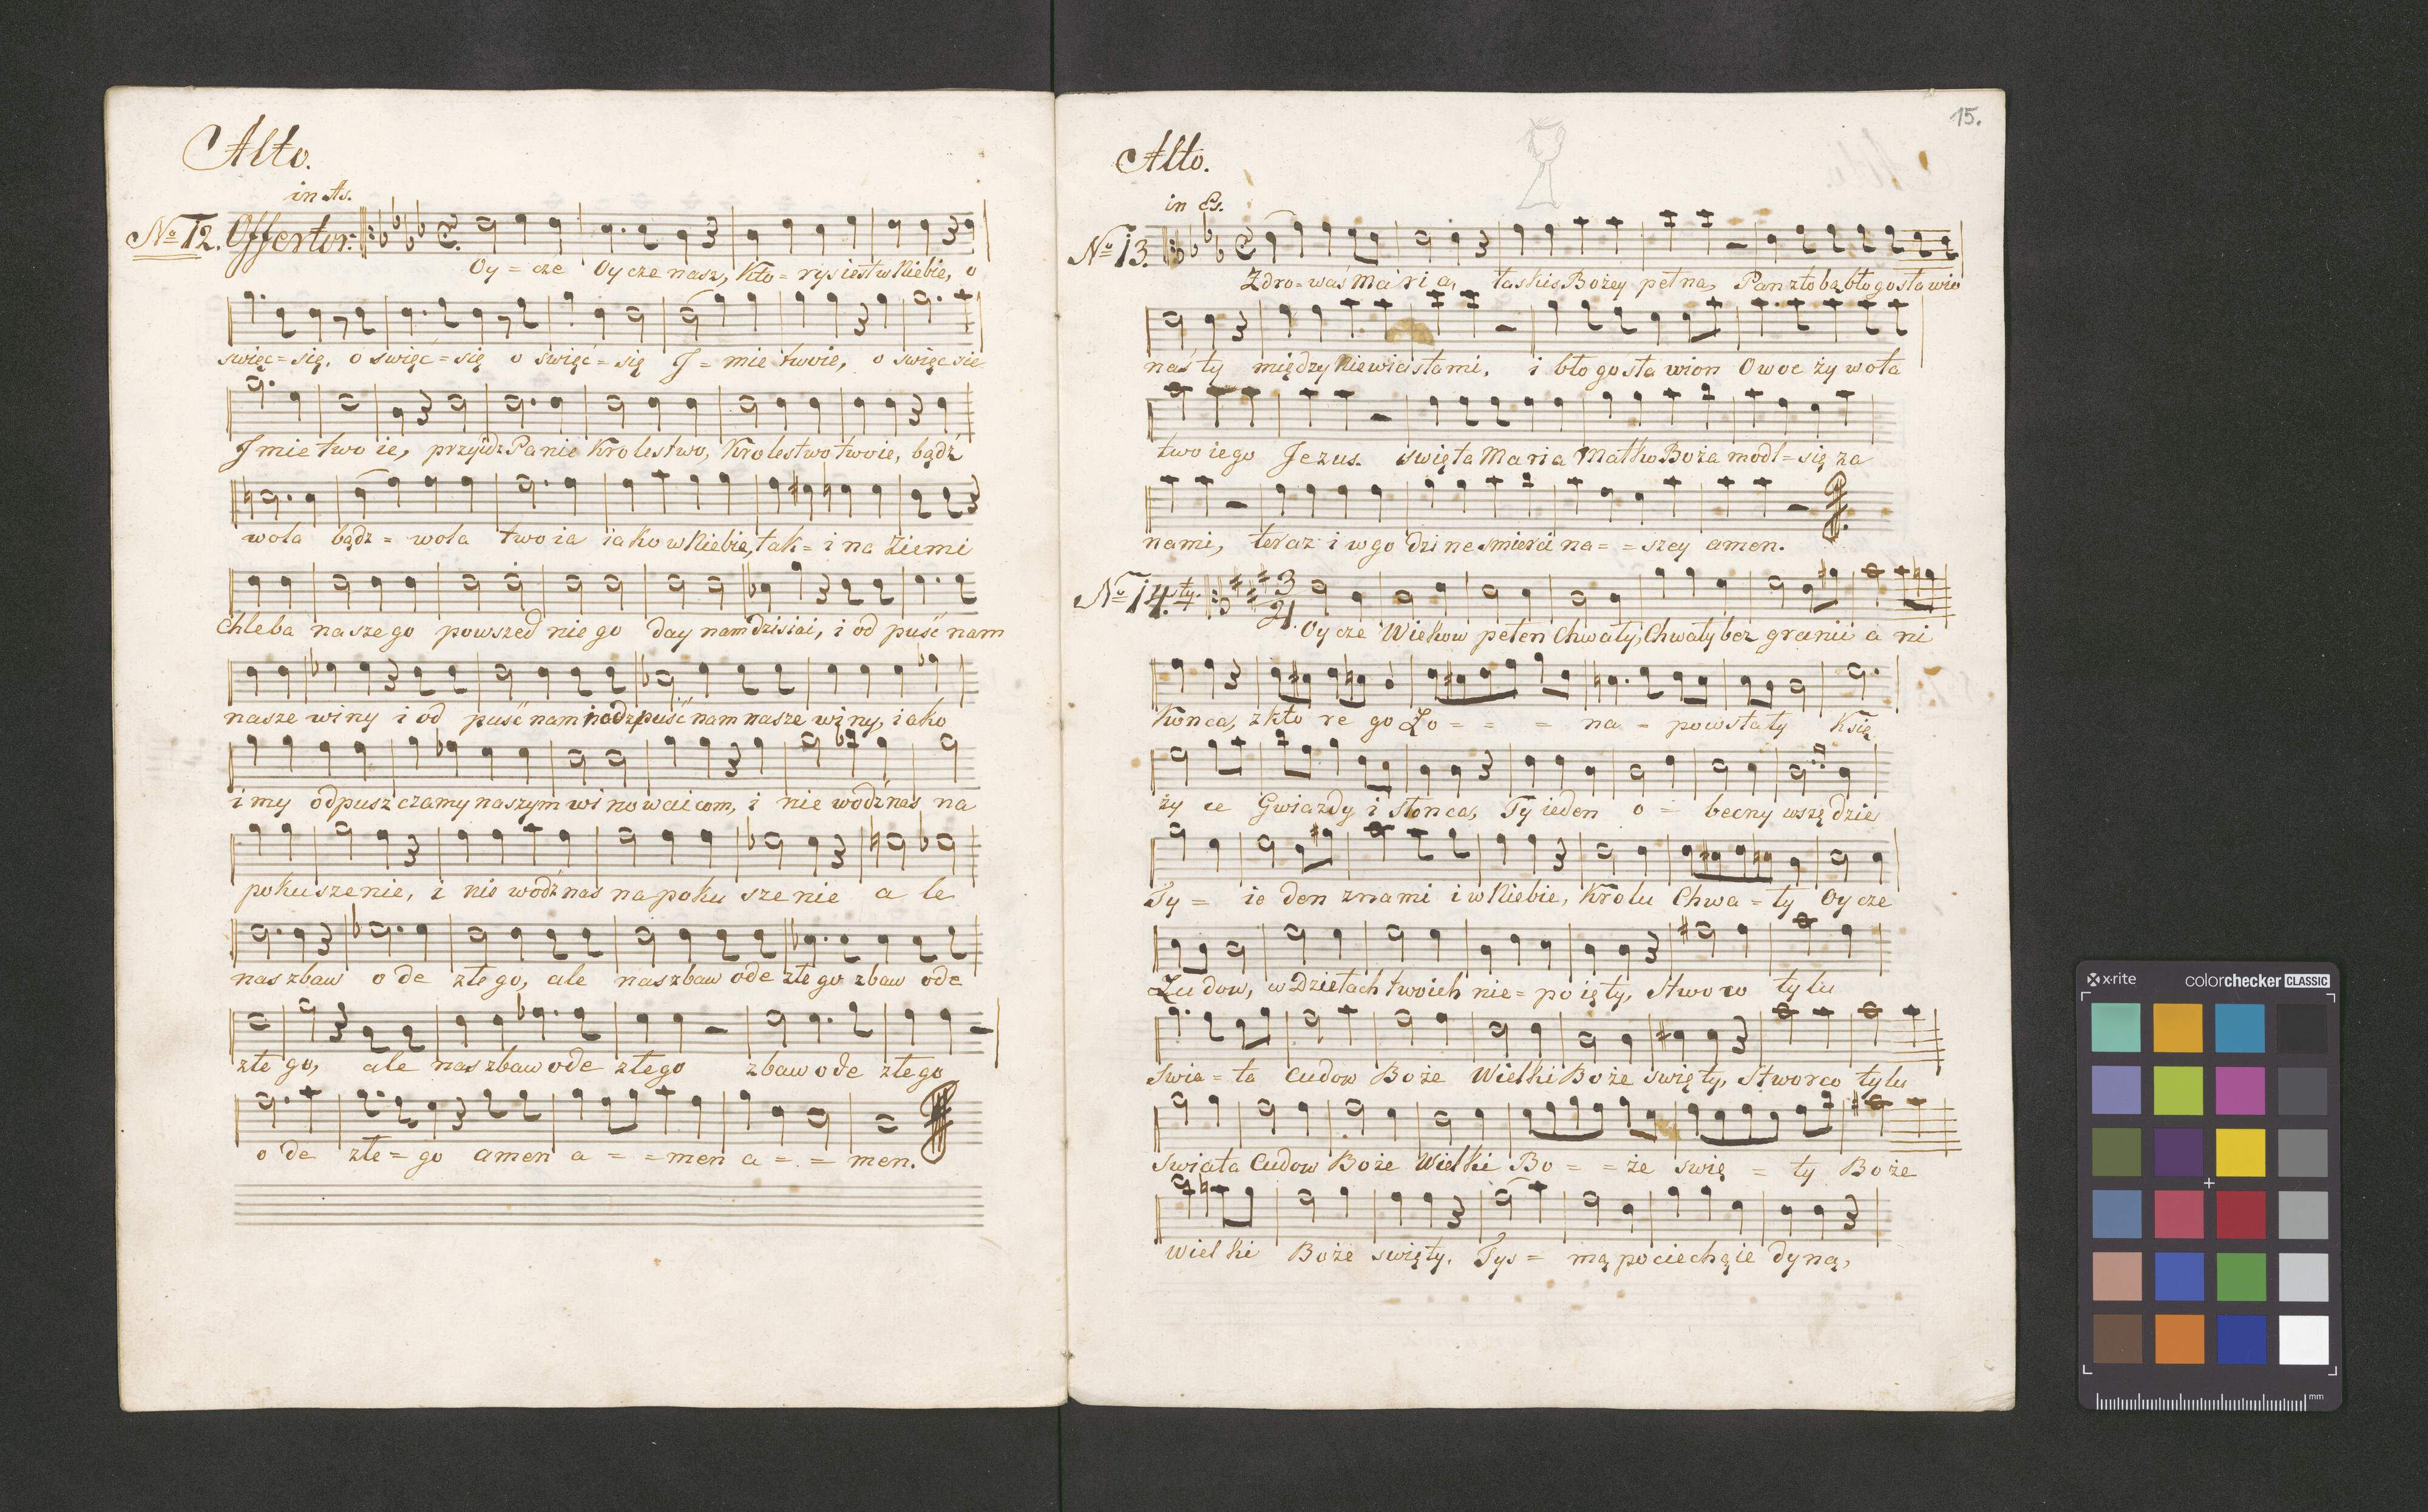 Alto.
in As.
No 12. Offertor:
Oy = cze Oy cze nasz, Kto = rys iest w Niebie, o
swięc = się, o swięć = się o swięć = się J = mie twoie, o swięc sie
Jmie two ie, przyidz Panie Krolestwo, Krolestwo twoie, bądź
wola bądz = wola twoia iako w Niebie, tak = i na Ziemi
Chleba naszego powszed niego day nam dzisiai, i od puść nam
nasze winy i od puść nam puść nam nasze winy, iako
i my odpusz czamy naszym wi nowaicom, i nie wodź nas na
pokuszenie, i nie wodź nas na poku szenie a le
nas zbaw o de złe go, ale nas zbaw ode złe go zbaw ode
złe go, ale nas zbaw ode złego zbaw o de złego
o de złe = go amen a = = men a = = men.
15.
Alto.
in Es.
No 13.
Zdro = waś Ma ri a, łaskiś Bożey pełna, Pan z tobą błogosławio
naś ty między Niewiastami, i błogosła wion Owoc żywota
two iego Jezus. święta Maria Matko Boża modl = się za
nami, teraz i w go dzine smierci na = = szey amen.
No 14.sty. 3 4
Oy cze Wiekow pełen Chwały, Chwały bez granic a ni
Konca, z kto re go Ło = = = na = powstały Księ
ży ce Gwiazdy i słonca, Ty ieden o = becny wszę dzie
Ty = ie den znami i w Niebie, Krolu Chwa = ły Oy cze
Ludow, w Dziełach twoich nie = poięty, stwo tylu
świa = ta Cudow Boże Wielki Boże swięty, Stworco tylu
swiata Cudow Boże Wielki Bo = = że swię = ty Boże
Wielki Boże swięty. Tyś = mą pociechą ie dyną,
x-rite colorchecker CLASSIC
mm